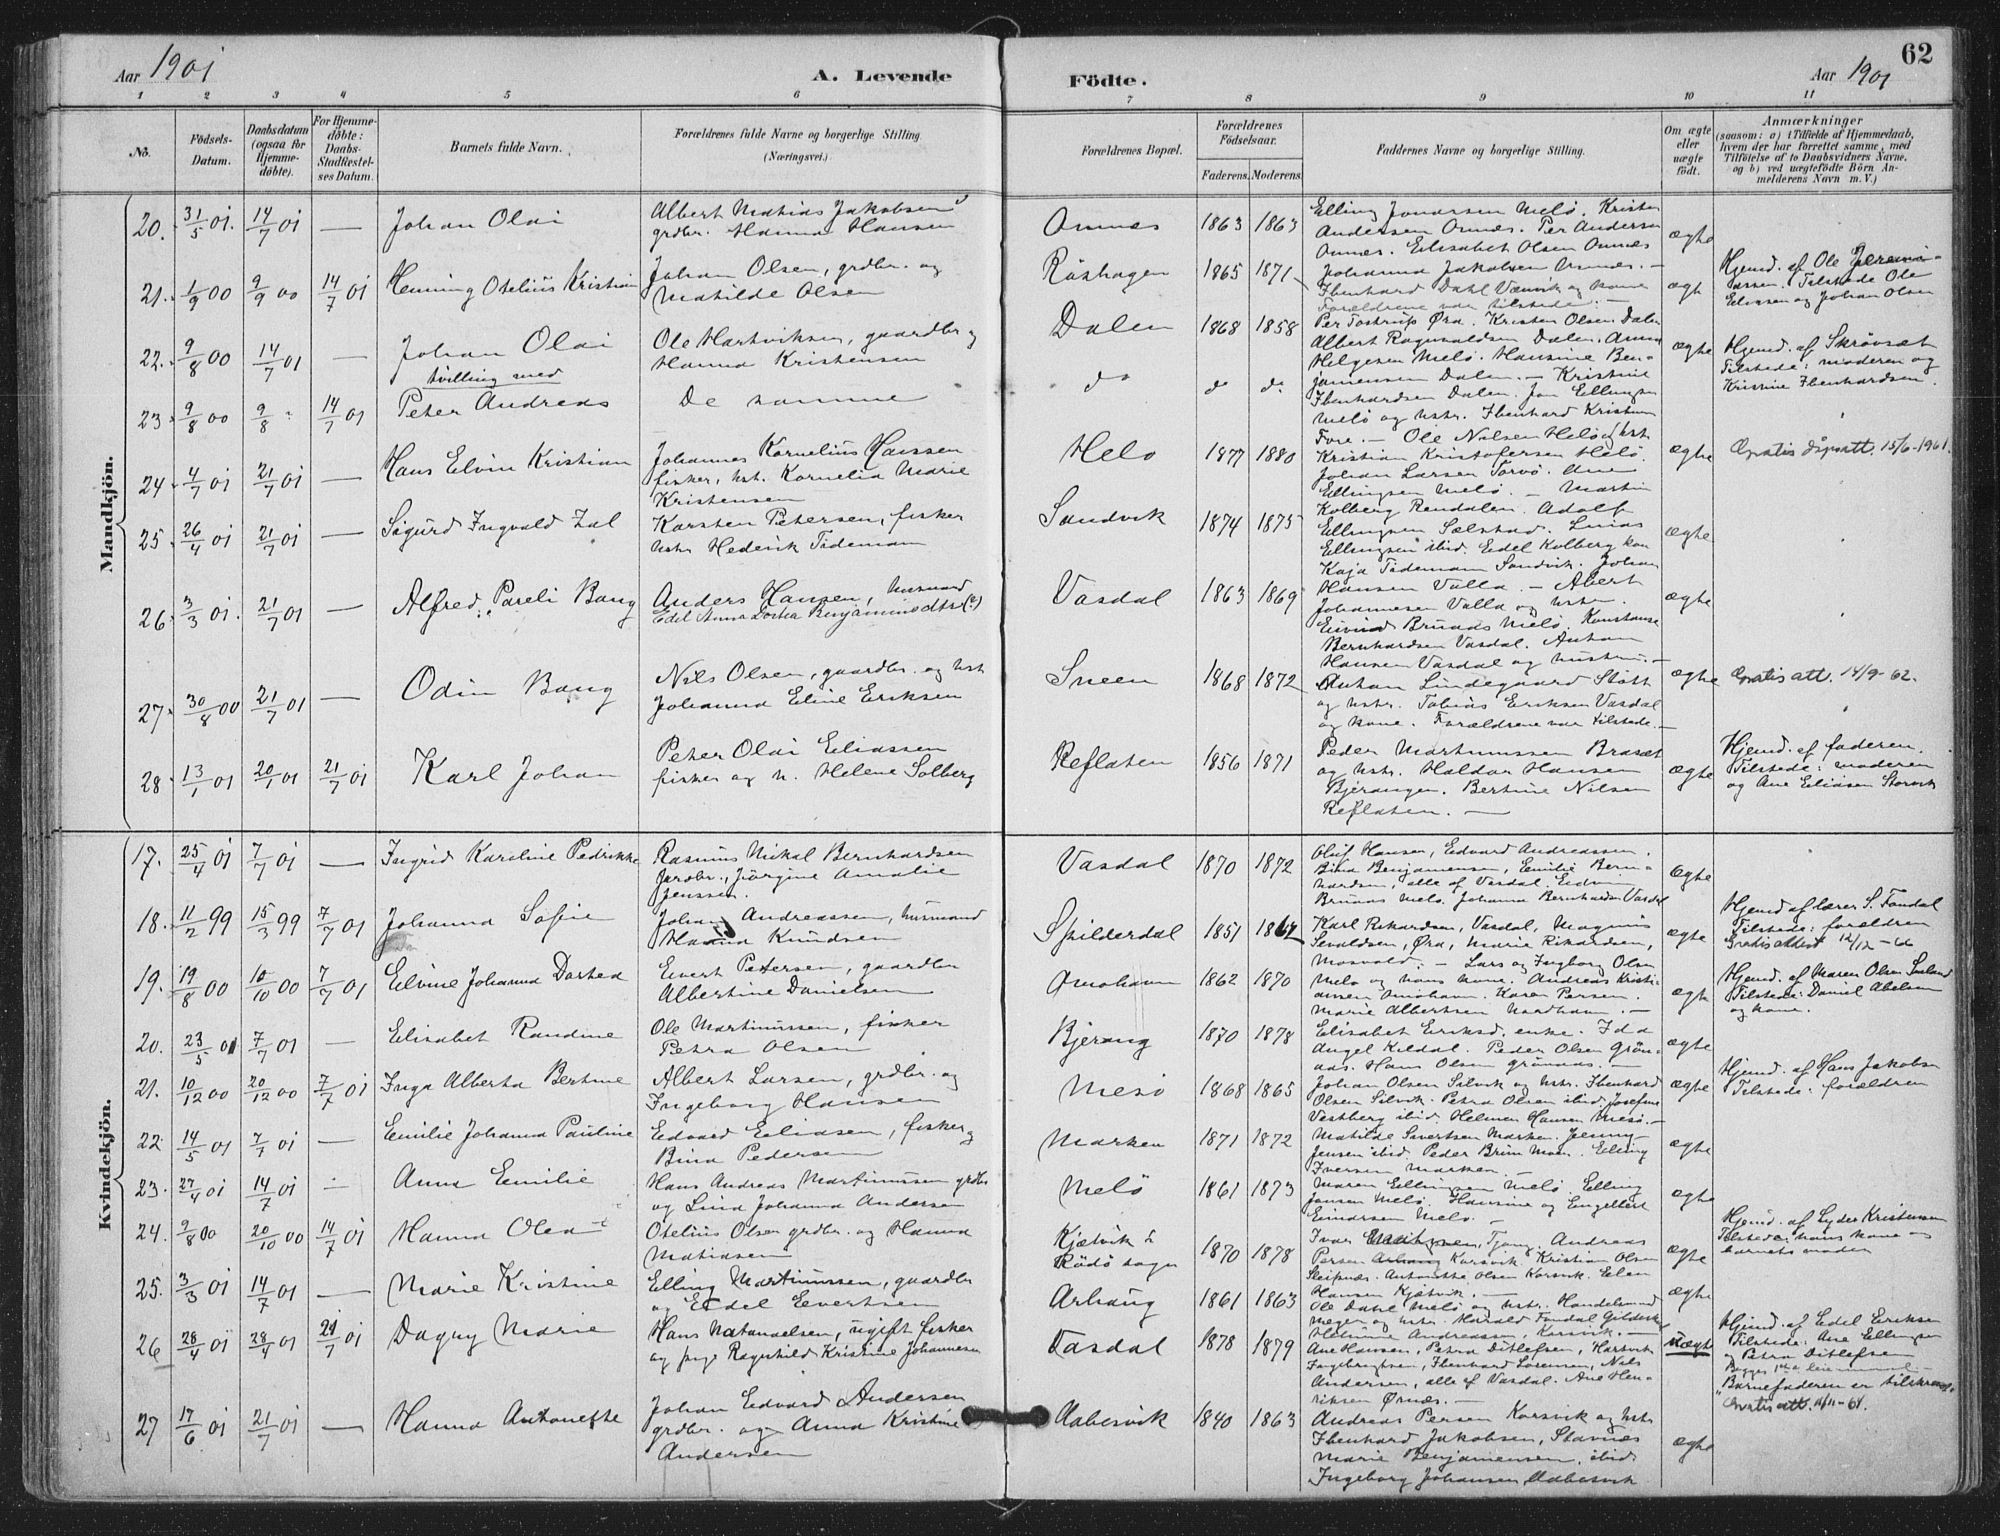 Aar 1901
A. Levende
Födte.
Aar 1901
62
1 2 3 4 5 6 7 8 9 10 11
No.
Födsels-Datum.
Daabsdatum (ogsaa for Hjemme-döbte).
For Hjemme-döbte: Daabs-Stadfæstel-ses Datum.
Barnets fulde Navn.
Forældrenes fulde Navne og borgerlige Stilling.
(Næringsvei.)
Forældrenes Bopæl.
Forældrenes Födselsaar.
Faderens. Moderens.
Faddernes Navne og borgerlige Stilling.
Om ægte eller uægte födt.
Anmærkninger
(saasom: a) i Tilfælde af Hjemmedaab,
hvem der har forrettet samme, med
Tilföielse af to Daabsvidners Navne.
og b) ved uægtefödte Börn An-
melderens Navn m. V.)
Mandkjön.
20. 31/5 01. 14/7 01 — Johan Olai
Albert Mathias Jakobsen
grdbr. Hanna Hansen
Onnes 1863 1863
Elling Jonassen Melö. Kristen
Andersen Onnes. Per Andersen
Onnes. Elisabet Olsen Onnes
Johanna Jakobsen Onnes. —
ægte
21. 1/9 00 9/9 00 14/7 01 Henning Otelius Kristian
Johan Olsen, grdbr. og
Matilde Olsen
Röshagen 1865 1871
Ebenhard Dahl Vænvik og kone
Forældrene var tilstede. —
ægt
Hjemd. af Ole Jeremi-
assen. Tilstede Ole
Eliasen og Johan Olsen
22. 9/8 00 14/7 01 — Johan Olai
tvilling med
Ole Hartviksen, gaardbr og
Hanna Kristensen
Dalen 1868 1858
Per Tostrup Öra. Kristen Olsen Dalen
Albert Ragnvaldsen Dalen. Anna
Helgesen Melö. Hansine Ben-
jamensen Dalen. — Kristine
ægte
Hjemd. af Skrövset
Tilstede: moderen og
Kristine Ebenhardsen.
23 9/8 00 9/8 " 14/7 01 Peter Andreas
De samme
do do do
Ebenhardsen Dalen. Jon Ellingsen
Melö og hstr. Ebenhard Kristian
Fore. — Ole Nilsen Helö og hstr.
24. 4/7 01 21/7 01 — Hans Elvin Kristian
Johannes Kornelius Hanssen
fisker, hst. Kornelia Marie
Kristensen
Helö 1877 1880
Kristian Kristofersen Helö.
Johan Larsen Torvö. Ane
Ellingsen Melö. — Martin
ægte
Gratis dåpsatt. 15/6-1961.
25. 26/4 01 21/7 01 — Sigurd Ingvald Zal
Karsten Petersen, fisker
hstr Hedevik Tideman
Sandvik 1874 1875
Kolberg Rendalen. Adolf
Ellingsen Selstad. Linas
Ellingsen ibid. Eidel Kolberg kon
Kaja Tideman Sandvik. Johan
ægte
26. 3/3 01. 21/7 01 — Alfred Pareli Bang
Anders Hansen, husmand
Edel Anna Dortea Benjaminsdtr (?)
Vasdal 1863 1869
Hansen Valla — Albert
Johannesen Valla og hstr.
Eivind Bruaas Melö. Konstanse
Bernhardsen Vasdal. Anton
Hansen Vasdal og hustru. —
ægte
27. 30/8 00 21/7 01 — Odin Bang
Nils Olsen, gaardbr. og hst
Johanna Eline Eriksen
Sneen 1868 1872
Anton Lindegaard Stött
og hstr. Tobias Eriksen Vasdal
og kone. Forældrene var tilstede. —
ægte
Gratis att. 14/9-62.
28. 13/1 01 20/1 01 21/7 01 Karl Johan
Peter Olai Eliassen
fisker og h. Helene Solberg
Reflaten 1856 1871
Peder Martinussen Brasæt
og hstr. Haldor Hansen
Bjerangen. Bertine Nilsen
Reflaten. —
ægte
Hjemd. af faderen.
Tilstede: moderen
og Ane Eliasen Storvik
Kvindekjön.
17. 25/4 01 7/7 01 — Ingrid Karoline Pedrikke
Rasmus Mikal Bernhardsen
jordbr., Jörgine Amalie
Jenssen.
Vasdal 1870 1872
Oluf Hansen, Edvard Andreassen.
Bina Benjamensen, Emilie Bern-
hardsen, alle af Vasdal. Eidun
Bruaas Melö. Johanna Bernhardsen Vasdal
ægte
18. 11/2 99 15/3 99 7/7 01 Johanna Sofie
Johan Andreassen, husmand
Hanna Knudsen
Spilderdal 1851 1864
Karl Rikardsen, Vasdal, Magnus
Sevaldsen, Öra, Marie Rikardsen,
Mosvold. — Lars og Ingborg Olsen
ægte
Hjemd af lærer S. Fondal
Tilstede: forældren
Gratis attest 12/12-66
19. 19/8 00 10/10 00 7/7 01 Elvine Johanna Dortea
Evert Petersen, gaardbr
Albertine Danielsen
Omohavn 1862 1870
Melö og hans kone. Andreas Kristi-
ansen Omohavn. Karen Persen.
Marie Albertsen Nordhavn. —
ægt
Hjemd. af Maren Olsen
Tilstede: Daniel Abelsen
og kone.
20. 23/5 01 7/7 01 — Elisabet Randine
Ole Martinussen, fisker
Petra Olsen
Bjerang 1870 1878
Elisabet Eriksd, enke. Ida
Angel Kildal. Peder Olsen Grön-
aas. Hans Olsen grönaas. —
ægte
21. 10/12 00 20/12 00 7/7 01 Inga Alberta Bertine
Albert Larsen, grdbr. og
Ingeborg Hansen
Mesö 1868 1865
Johan Olsen Selvik og hstr. Ebenhard
Olsen Selvik. Petra Olsen ibid Josefine
Vestberg ibid. Helmer Hansen Mesö. —
ægte
Hjemd. af Hans Jakobsen
Tilstede: forældren
22 14/5 01 7/7 01 — Emilie Johanna Pauline
Edvard Eliasen, fisker og
Bina Pedersen
Marken 1871 1872
Matilde Sivertsen Marken. Jenny
Jensen ibid. Peder Brun Moen. Elling
Iversen Marken.
ægte
23. 27/4 01 14/7 01 — Anna Emilie
Hans Andreas Martinussen grdbr
og Lina Johanna Andersen
Melö 1861 1873
Maren Ellingsen Melö Elling
Jonsen Melö. Hansine og Engelbert
Einarsen Melö. —
ægte
24. 9/8 00 20/10 00 14/7 01 Hanna Olea
Otelius Olsen grdbr. og Hanna
Matiasen
Kjætvik i
Rödö sogn 1870 1878
Ivar Tjong. Andreas
Persen Korsvik. Kristian Olsen
Sleipnes. Antonette Olsen Korsvik. Elen
Hansen Kjætvik. —
ægte
Hjemd. af Lyder Kristensen
Tilstede: hans kone og
barnets moder
25. 3/3 01 14/7 01 — Marie Kristine
Elling Martinussen, gaardbr
og Eidel Evertsen
Arhaug 1861 1863
Ole Dahl Melö og hstr. Handelsmand
Meyer og hstr. Harald Fondal Gildesk
Andreassen, Korsvik. —
ægte
26 28/4 01 28/4 01 21/7 01 Dagny Marie
Hans Natanaelsen, ugift fisker
og pige Ragnhild Kristine Johannesen
Vasdal 1878 1879
Ane Hansen, Petra Ditlefsen, Hartvik
Ingebrigtsen, Ebenhard Sörensen, Nils
Andersen, alle af Vasdal. Ane Hen-
riksen Örnes. —
uægte
Hjemd. af Edel Eriksen
Tilstede: Ane Ellingsen
og Petra Ditlefsen
"Barnefaderen er tilskrevet."
Gratis att. 11/11-68.
27 17/6 01 21/7 01 — Hanna Antonette
Johan Edvard Andersen
grdbr. og Anna Kristine
Andersen
Aabesvik 1840 1863
Andreas Persen Korsvik og hstr.
Ebenhard Jakobsen, Stavnes
Marie Benjamensen, ibid.
Ingeborg Johansen, Aabesvik
ægte